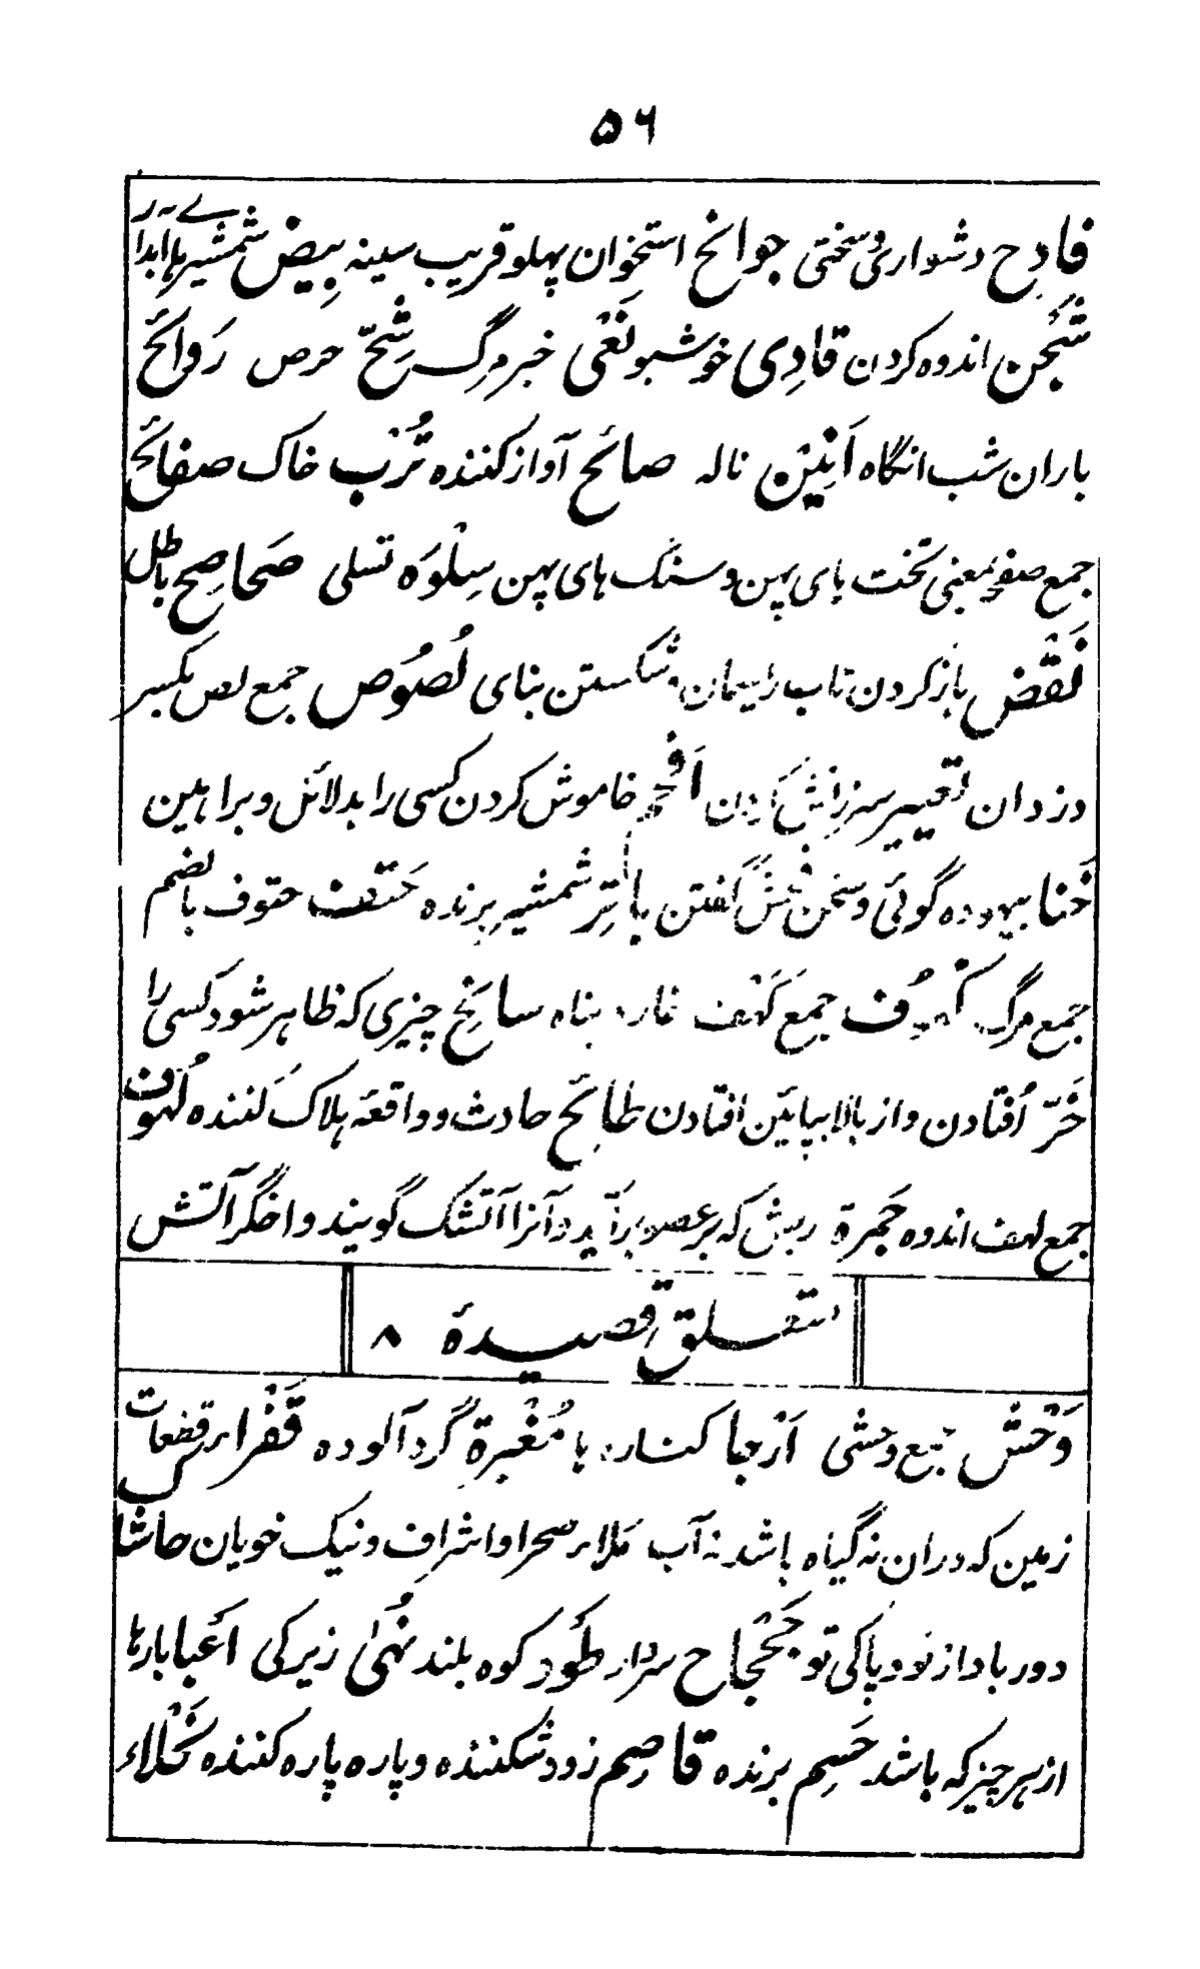 ۵۶
فادِح دشواری و سختی جوانح استخوان پہلو قریب سینہ بِیض شمشیرہای آبدار
شَجن اندوہ کردن قادِی خوشبو نَعْی خبر مرگ شِحّ حرص رَوائح
باران شب انگاہ اَنِیْن نالہ صائح آواز کنندہ تُرْب خاک صفائح
جمع صفحہ بمعنی تخت ہای پہن و سنگ ہای پہن سِلْوَہ تسلی صَحاصِح باطل
نَقْض باز کردن تاب راسیمان و شکستن بنای لُصُوص جمع لص بکسر
دزدان تعییر سرزنش کردن خاموش کردن کسی را بدلائل و براہین
خَنا بیہودہ گوئی و سخن فحش گفتن باتِر شمشیر برندہ حَتف حتوف بالضم
جمع مرگ کہوف جمع کَہف غار و پناہ سانِح چیزی کہ ظاہر شود کسی را
خَرّ اُفتادن و از بالا بپائین افتادن طائِح حادث و واقعہ ہلاک کنندہ لُہوف
جمع لہف اندوہ جَمرۃ ریش کہ بر عضو برآید و آنرا آتشک گویند و اخگر آتش
متعلق قصیدۂ ۸
وَحْش جمع وحشی اَرْجا کنارہ ہا مُغْبِرۃ گرد آلودہ قَفْراء قطعات
زمین کہ دران نہ گیاہ باشد نہ آب مَلاء صحرا و اشراف و نیک خویان حاشا
دور باد از تو و پاکی تو جَحْجاح سردار طَود کوہ بلند نُہیٰ زیرکی اَعبا بارہا
از ہر چیز کہ باشد حَسِم برندہ قاصِم زود شکنندہ و پارہ پارہ کنندہ نَجْلاء